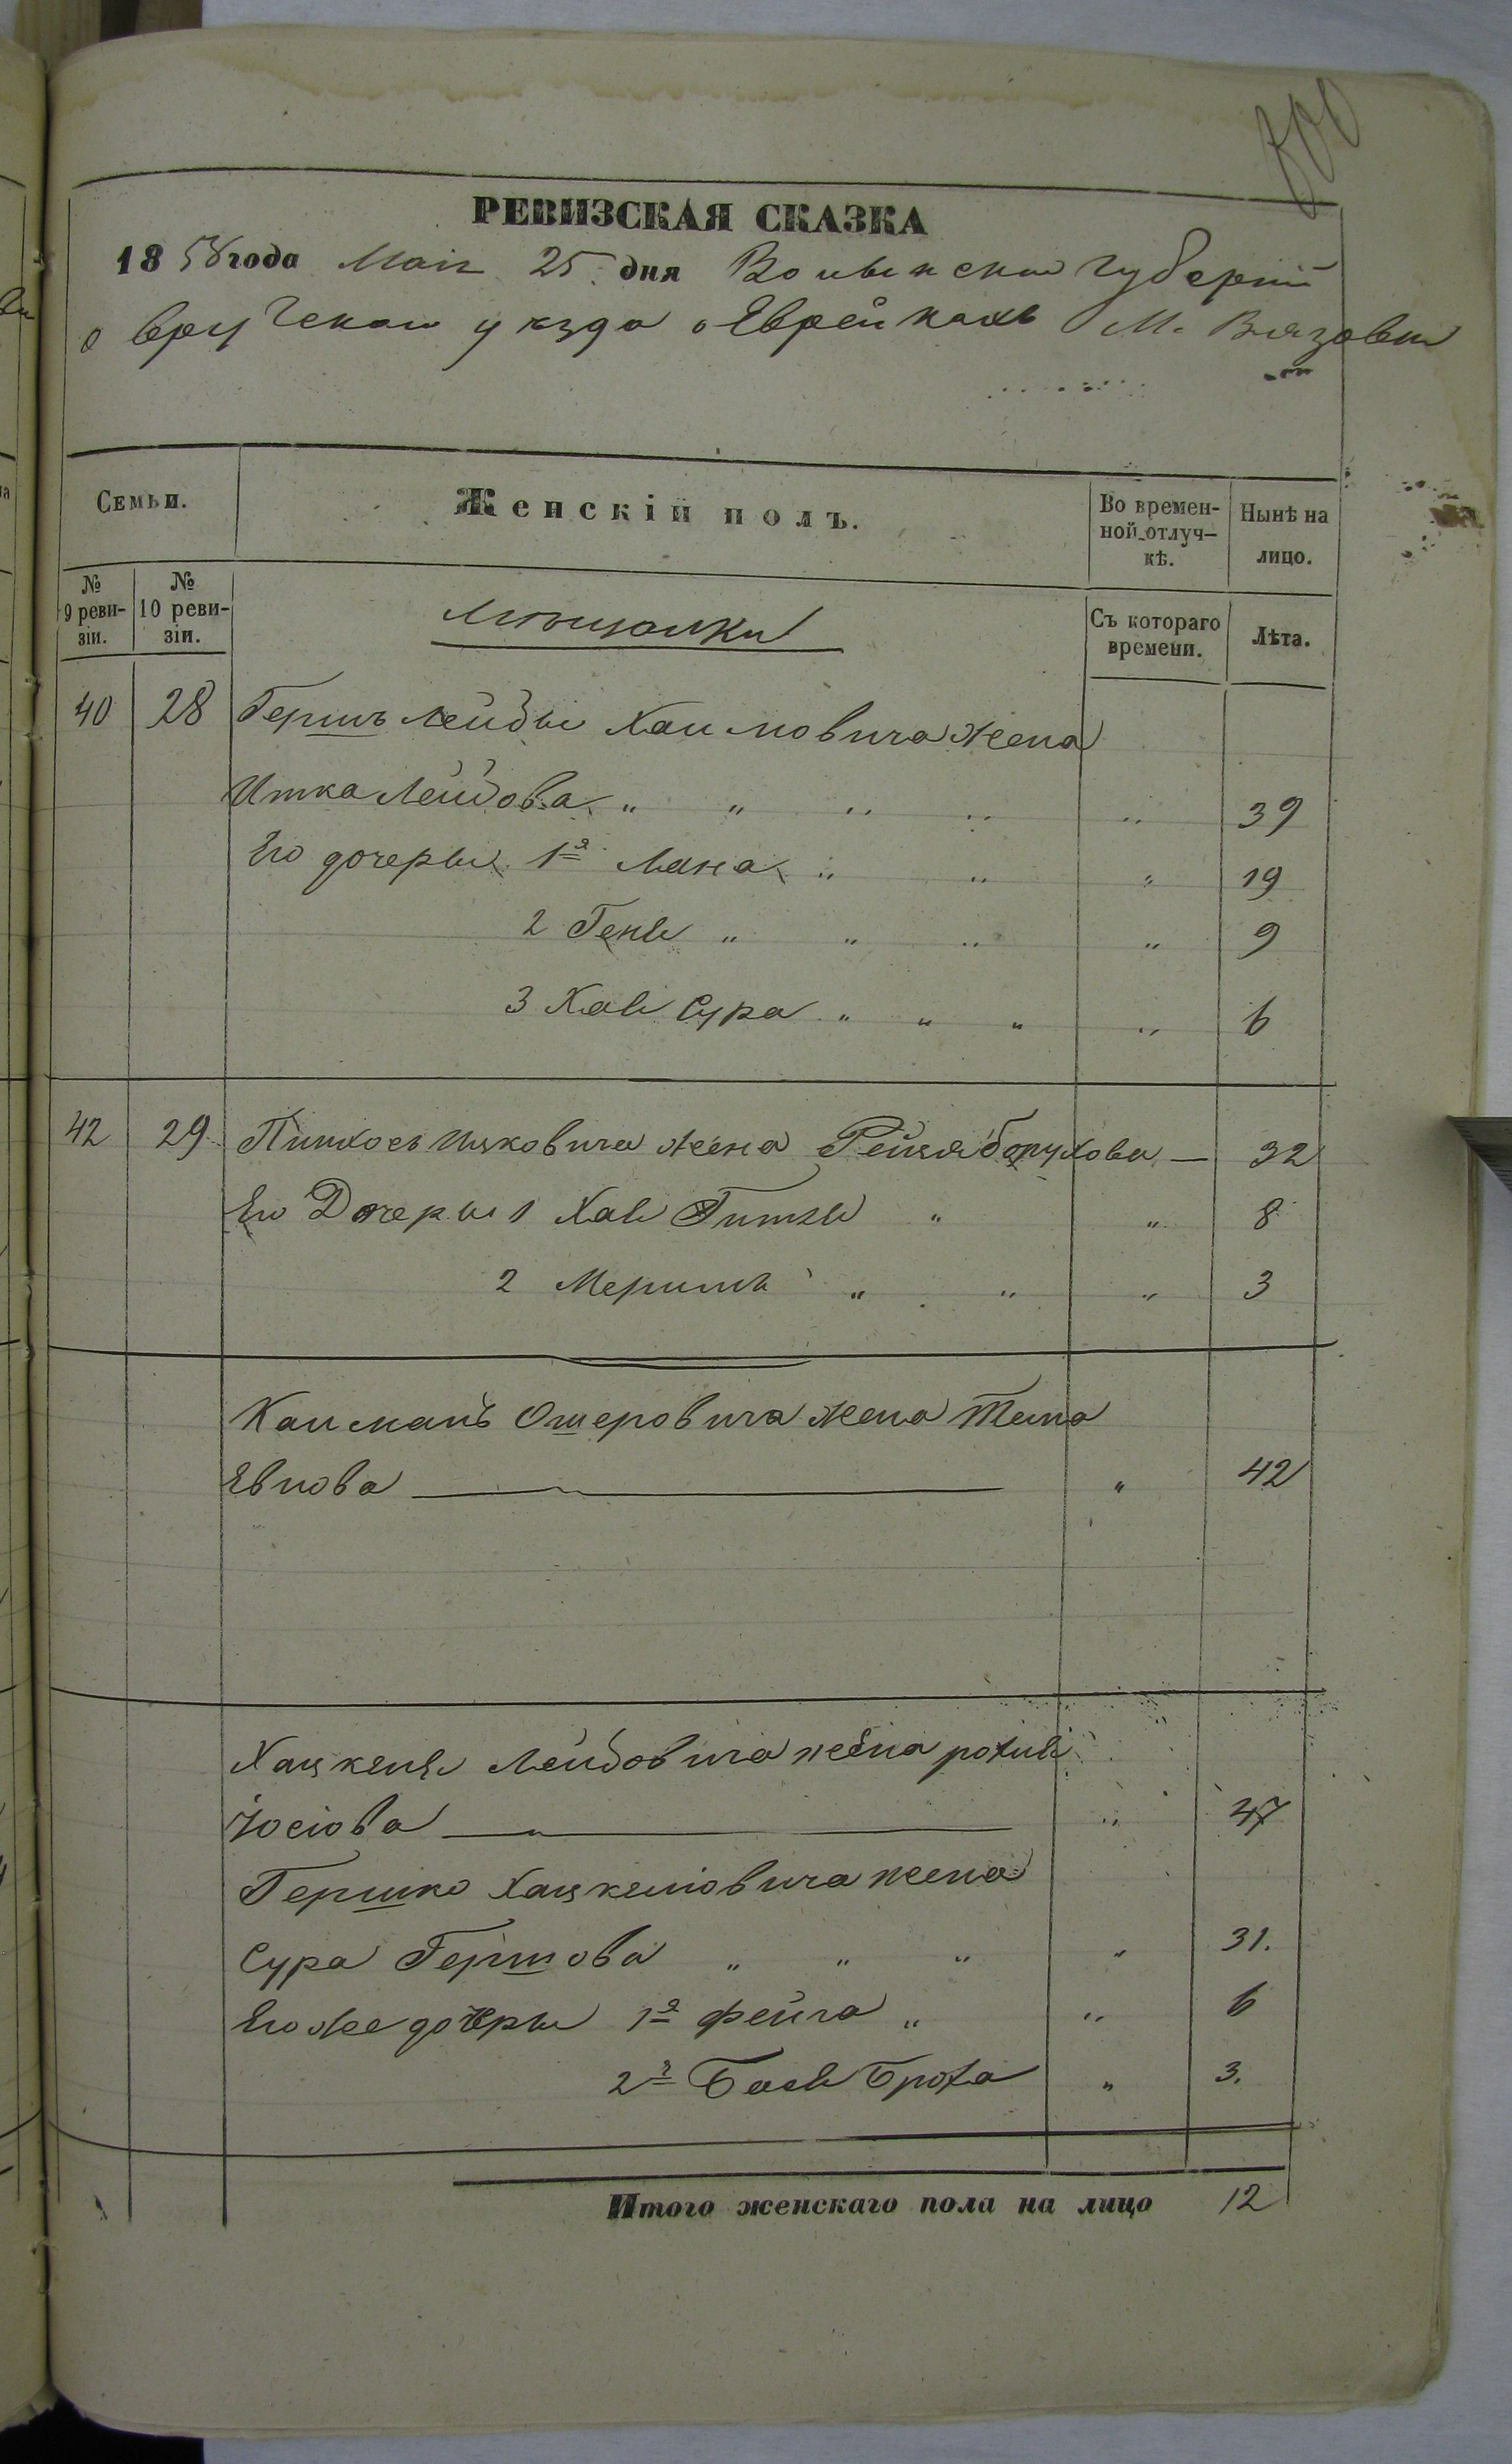 РЕВИЗСКАЯ СКАЗКА
1858 года Мая 25 дня Волынской губерніи
Овручской уезда о Еврейкахъ М. Вязовки
Семьи.
Женскій полъ.
Во времен-
ной отлуч-
кѣ.
Нынѣ на
лицо.
№
9 реви-
зіи.
№
10 реви-
зіи.
Мѣщанки
Съ котораго
времени.
Лѣта.
40 28 Гершъ Лейбы Хаимовича жена
Итка Лейбова " " " " " 39
Его дочеры 1я " " " 19
2 Геня " " " " 9
3 Хая Сура " " " " 6
42 29 Пинхосъ Ицковича жена Рейзя Борухова — 32
Его Дочеры 1 Хая Гитля " " 8
2 Меримъ " " " 3
Калманъ Ошеровича жена
Евнова " 42
Хацкеля Лейбовича жена рохля
Іосіова " 47
Гершко Хацкеліовича жена
Сура Гершова " " " " 31.
Его же дочеры 1я фейга " " 6
2я Бася Броха " 3.
Итого женскаго пола на лицо 12